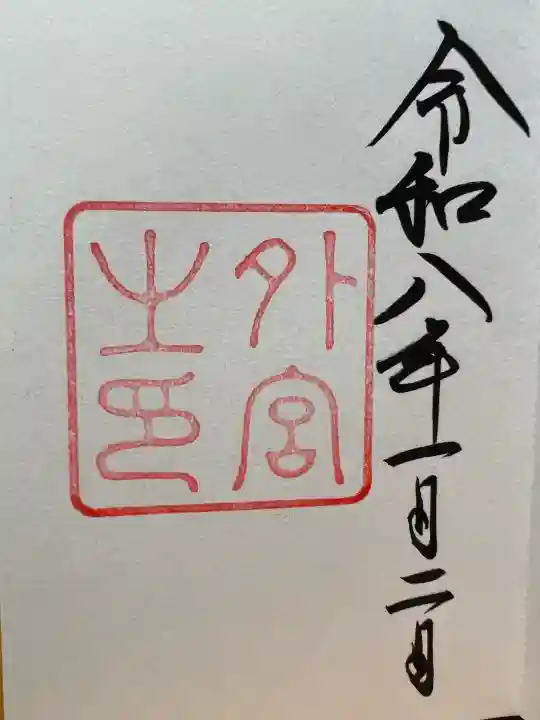 令和八年一月二日
外宮之印